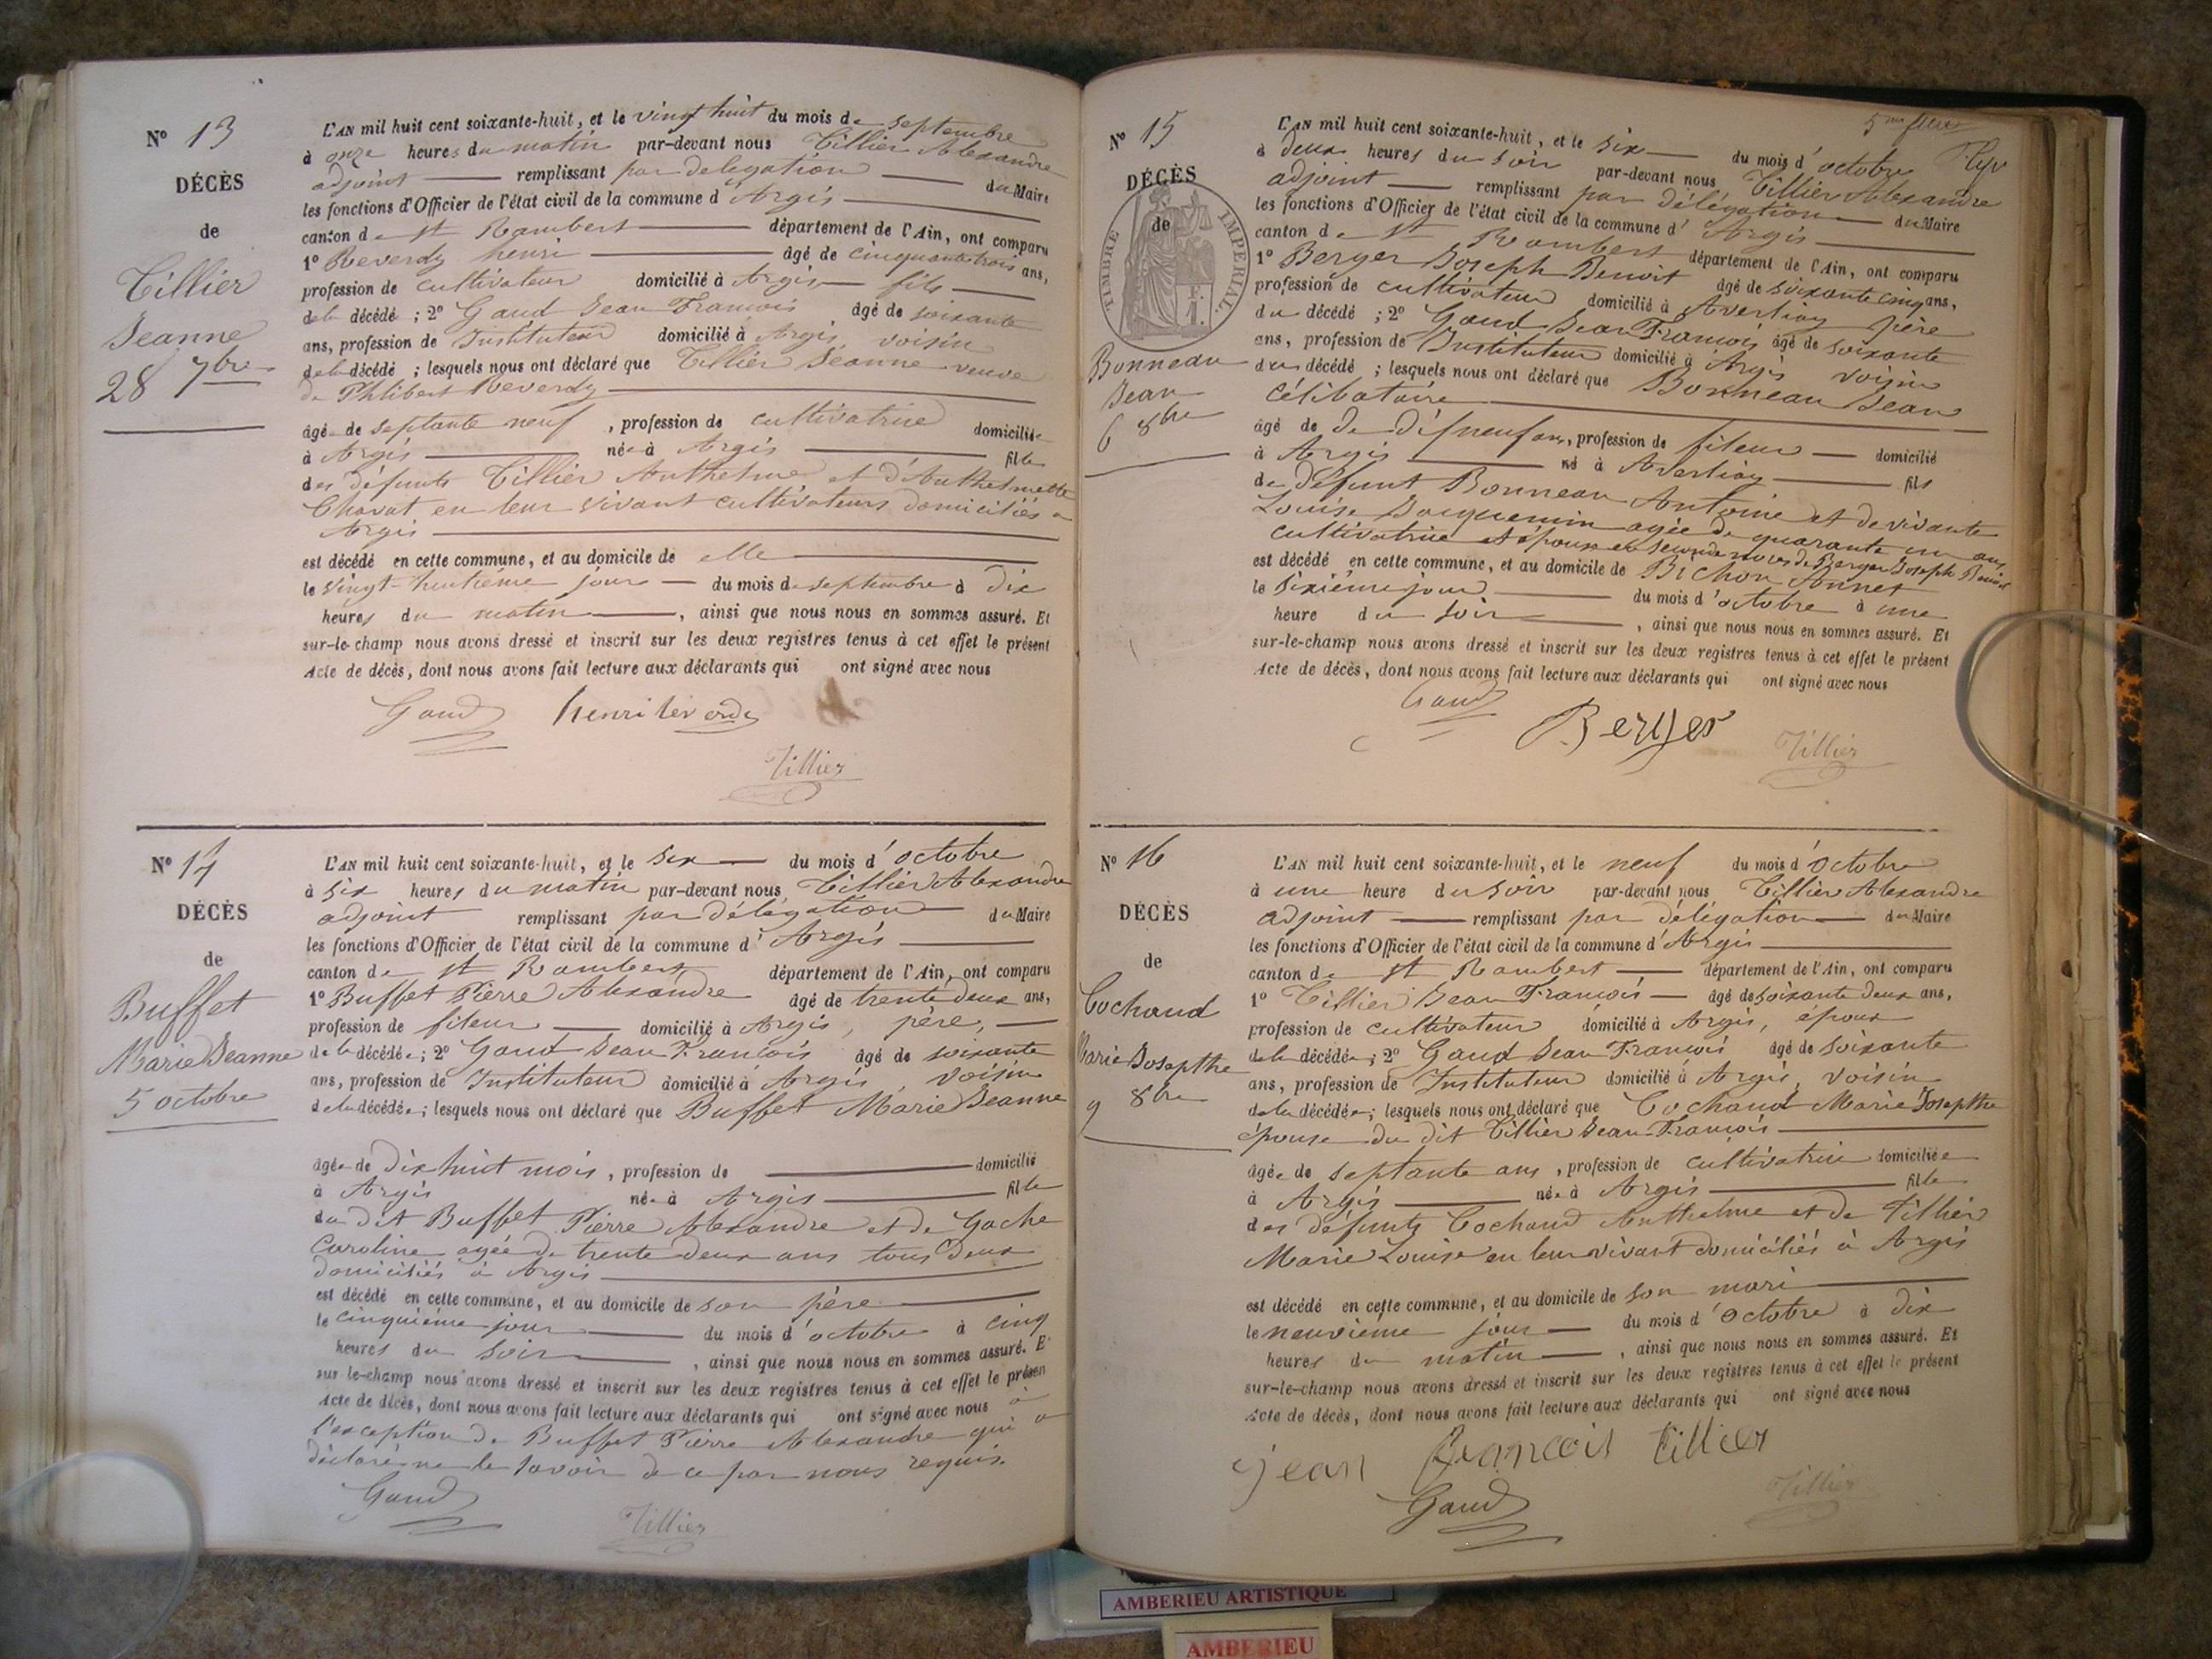 N° 13
DÉCÈS
de
Tillier
Jeanne
28 7bre
L'AN mil huit cent soixante-huit, et le vingt huit du mois de septembre
à onze heures du matin par-devant nous Tillier Alexandre
adjoint remplissant par delegation du Maire
les fonctions d'Officier de l'état civil de la commune d'Argis
canton de St Rambert département de l'Ain, ont comparu
1° Reverdy henri âgé de cinquante trois ans,
profession de cultivateur domicilié à Argis fils
de la décédé ; 2° Gaud Jean François âgé de soixante
ans, profession de Instituteur domicilié à Argis voisin
de la décédé ; lesquels nous ont déclaré que Tillier Jeanne veuve
de Philibert Reverdy
âgée de septante neuf , profession de cultivatrice domiciliée
à Argis née à Argis fille
des défunts Tillier Anthelme et d'Anthelmette
Chavat en leur vivant cultivateurs domiciliés à
Argis
est décédé en cette commune, et au domicile de elle
le vingt-huitième jour du mois de septembre à dix
heures du matin , ainsi que nous nous en sommes assuré. Et
sur-le-champ nous avons dressé et inscrit sur les deux registres tenus à cet effet le présent
Acte de décès, dont nous avons fait lecture aux déclarants qui ont signé avec nous
Gaud henri reverdy
Tillier
N° 14
DÉCÈS
de
Buffet
Marie Jeanne
5 octobre
L'AN mil huit cent soixante-huit, et le six du mois d'octobre
à six heures du matin par-devant nous Tillier Alexandre
adjoint remplissant par délégation du Maire
les fonctions d'Officier de l'état civil de la commune d'Argis
canton de St Rambert département de l'Ain, ont comparu
1° Buffet Pierre Alexandre âgé de trente deux ans,
profession de fileur domicilié à Argis, père,
de la décédée ; 2° Gaud Jean François âgé de soixante
ans, profession de Instituteur domicilié à Argis, voisin
de la décédée ; lesquels nous ont déclaré que Buffet Marie Jeanne
âgée de dix huit mois , profession de domicilié
à Argis née à Argis fille
du dit Buffet Pierre Alexandre et de Gache
Caroline agée de trente deux ans tous deux
domiciliés à Argis
est décédé en cette commune, et au domicile de son père
le cinquième jour du mois d'octobre à cinq
heures du soir , ainsi que nous nous en sommes assuré. E
sur-le-champ nous avons dressé et inscrit sur les deux registres tenus à cet effet le présen
Acte de décès, dont nous avons fait lecture aux déclarants qui ont signé avec nous à
l'exception de Buffet Pierre Alexandre qui a
déclaré ne le savoir de ce par nous requis.
Gaud
Tillier
5me
N° 15
DÉCÈS
de
TIMBRE IMPERIAL.
Bonneau
Jean
6 8bre
L'AN mil huit cent soixante-huit, et le six du mois d'octobre
à deux heures du soir par-devant nous Tillier Alexandre
adjoint remplissant par délégation du Maire
les fonctions d'Officier de l'état civil de la commune d'Argis
canton de St Rambert département de l'Ain, ont comparu
1° Berger Joseph Benoit âgé de soixante cinq ans,
profession de cultivateur domicilié à père
du décédé ; 2° Gaud Jean François âgé de soixante
ans, profession de Instituteur domicilié à Argis voisin
du décédé ; lesquels nous ont déclaré que Bonneau Jean
célibataire
âgé de de dixneuf ans, profession de fileur domicilié
à Argis né à fils
de défunt Bonneau Antoine et de vivante
Louise Jacquemin agée de quarante un ans
cultivatrice et épouse en seconde noces de Berger Joseph Benoit
est décédé en cette commune, et au domicile de Bichon Annet
le sixième jour du mois d'octobre à une
heure du soir , ainsi que nous nous en sommes assuré. Et
sur-le-champ nous avons dressé et inscrit sur les deux registres tenus à cet effet le présent
Acte de décès, dont nous avons fait lecture aux déclarants qui ont signé avec nous
Gaud
Berger
Tillier
N° 16
DÉCÈS
de
Cochaud
Marie Josepthe
9 8bre
L'AN mil huit cent soixante-huit, et le neuf du mois d'octobre
à une heure du soir par-devant nous Tillier Alexandre
adjoint remplissant par délégation du Maire
les fonctions d'Officier de l'état civil de la commune d'Argis
canton de St Rambert département de l'Ain, ont comparu
1° Tillier Jean François âgé de soixante deux ans,
profession de cultivateur domicilié à Argis, époux
de la décédée ; 2° Gaud Jean François âgé de soixante
ans, profession de Instituteur domicilié à Argis, voisin
de la décédée ; lesquels nous ont déclaré que Cochaud Marie Josepthe
épouse du dit Tillier Jean François
âgée de septante ans , profession de cultivatrice domiciliée
à Argis née à Argis fille
des défunts Cochaud Anthelme et de Tillier
Marie Louise en leur vivant domiciliés à Argis
est décédé en cette commune, et au domicile de son mari
le neuvième jour du mois d'octobre à dix
heures du matin , ainsi que nous nous en sommes assuré. Et
sur-le-champ nous avons dressé et inscrit sur les deux registres tenus à cet effet le présent
Acte de décès, dont nous avons fait lecture aux déclarants qui ont signé avec nous
jean françois tillier
Gaud
Tillier
AMBERIEU ARTISTIQUE
AMBERIEU